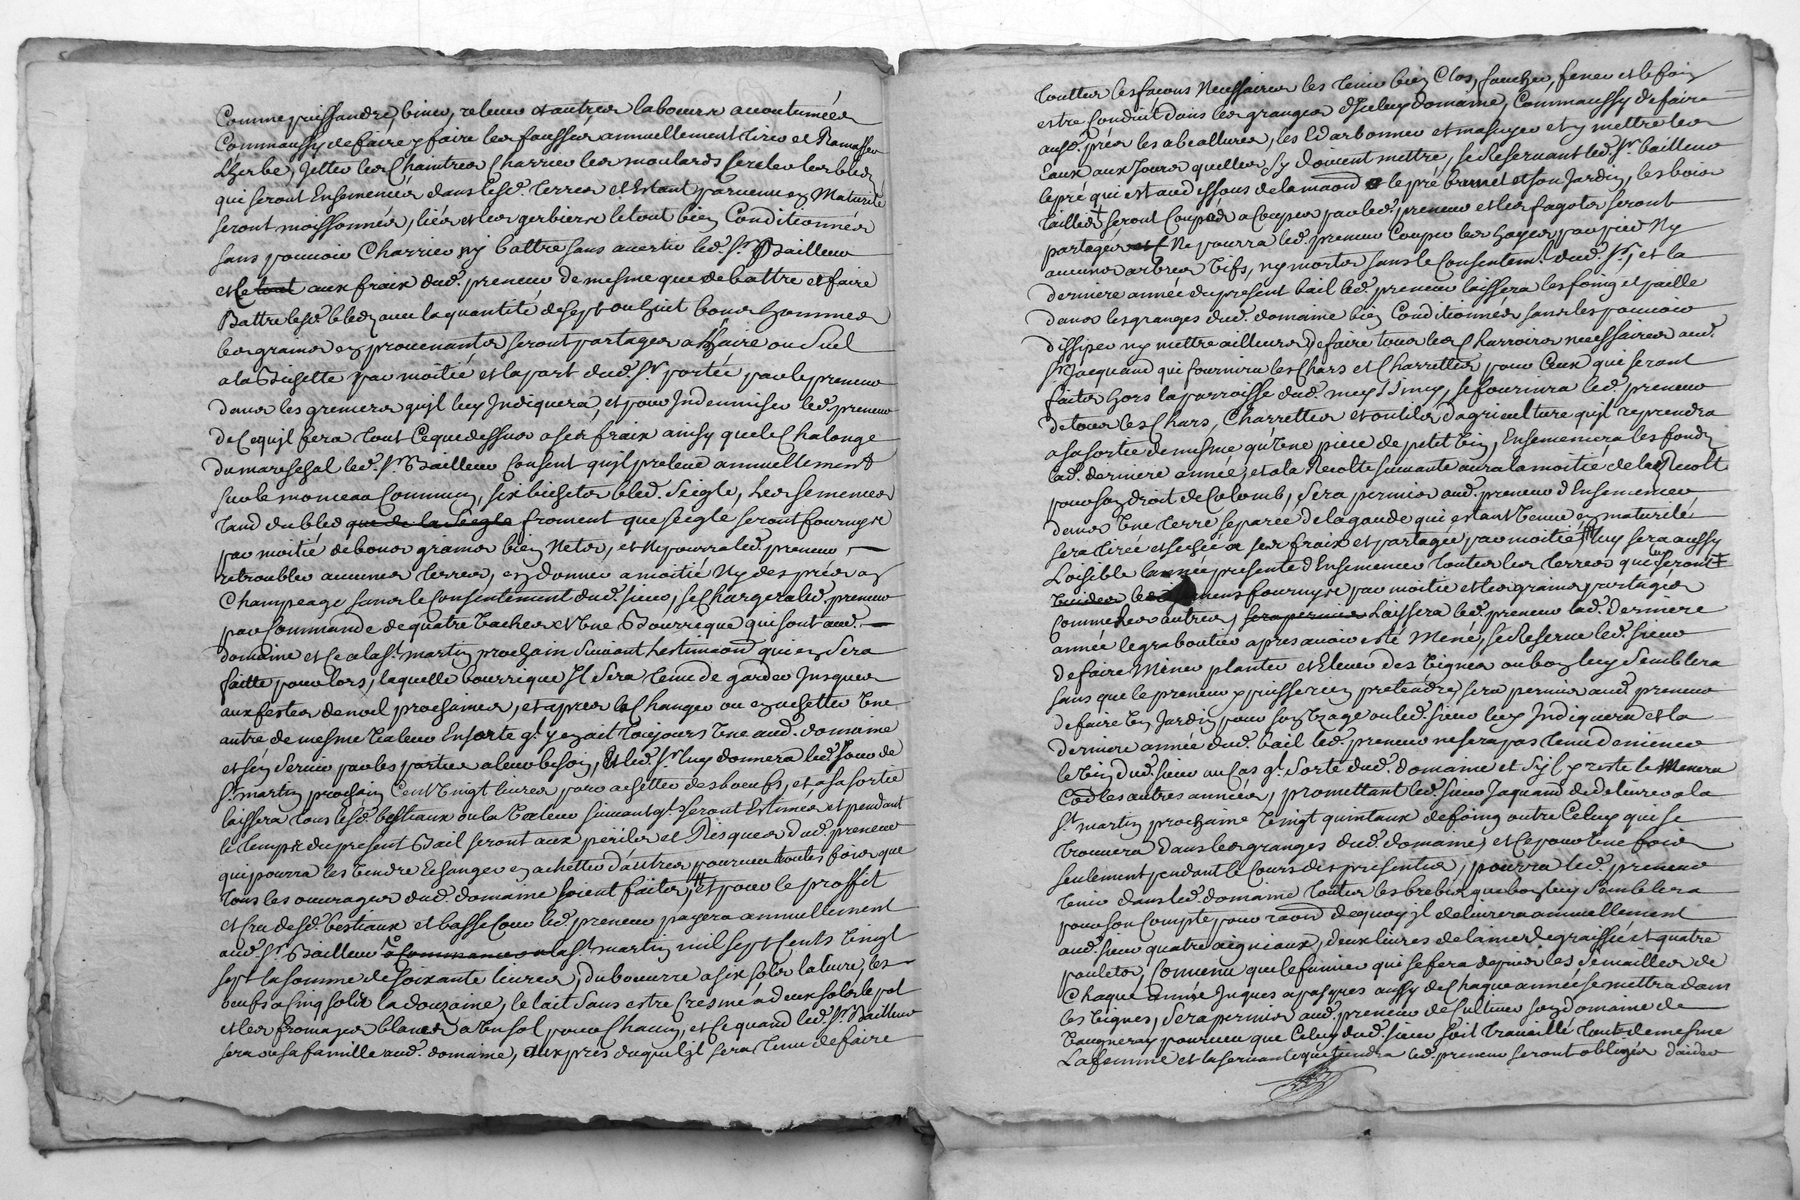 Comme puissandré, biner, releuer et autres labours accoutumées
Comm'aussy de faire faire les fosséz annuellement tirer et Ramasser
L'herbe, Jetter les Chaintres Charrier les moulards sercler les bledz
qui seront Ensemencés dans lesd. terres et Estant paruenus en Maturité
seront moissonnés, liés et les gerbiers le tout bien Conditionnés
sans pouuoir Charrier ny battre sans auertir led. Sr. Bailleur
et le tout aux fraix dud. preneur de mesme que de battre et faire
Battre lesd. bledz auec la quantité de sept ou huit bons hommes
les grains en prouenants seront partagés a l'aire ou suel
a la Bichette par moitié et la part dud. Sr. portée par le preneur
dans les greniers qu'il luy Indiquera, et pour Indemniser led. preneur
de Ce qu'il fera tout Ce que dessus a ses fraix ainsy que le Chalonge
du mareschal led. Sr. Bailleur Consent qu'il preleue annuellement
sur le monceau Commun, six bichettes bled. seigle, les semences
tand du bled que de la seigle froment que seigle seront fournyes
par moitié de bons grains bien nets, et ne pourra led. preneur
retroubler aucunes terres, en donner a moitié Ny des prés en
Champeage sans le Consentement dud. sieur, se Chargera led. preneur
par Commande de quatre Vaches et Vne Bourrique qui sont aud.
domaine et Ce a la St. martin prochain suiuant l'estimaon qui en sera
faitte pour lors, laquelle bourrique Il sera tenu de garder Jusques
aux festes de noel prochaines, et apres la Changer ou en achetter Vne
autre de mesme Valeur En sorte q'l y en ait toujours Vne aud. domaine
et s'en seruir par les parties a leur besoin, et led. Sr. luy donnera led. Jour de
St. martin prochain Cent Vingt liures pour achetter des boeufs, et a sa sortie
laissera tous lesd. bestiaux ou la Valeur suiuant q'l seront Estimés et pendant
le temps du present Bail seront aux perils et Risques dud. preneur
qui pourra les Vendre Echanger en achetter d'autres pourueu toutes fois que
tous les ouurages dud. domaine soient faits, et pour le proffit
et Cru desd. bestiaux et basse Cour led. preneur payera annuellement
aud. Sr. Bailleur a Commancer a la St. martin mil sept Cents Vingt
sept la somme de soixante liures, du beurre a six sols la liure, les
oeufs a Cinq sols la douzaine, le lait sans estre Cresmé a deux sols le pot
et les fromages blancs a Vn sol pour Chacun, et Ce quand led. Sr. Bailleur
sera ou sa famille aud. domaine, aux prés duquel il sera tenu de faire
touttes les façons Necessaires les tenir bien Clos, faucher, fener et le foin
estre Conduit dans les granges d'Iceluy domaine, Comm'aussy de faire
ausd. prés les abeallures, les Darbonnes et et y mettre les
Eaux aux Jours qu'elles sy doiuent mettre, se Reseruant led. Sr. bailleur
le pré qui est au dessous de la maaon le pré brunet et son Jardin, les bois
taillés seront Coupés a Couper par led. preneur et les fagots seront
partagés et Ne pourra led. preneur Couper les hayes par pied Ny
aucuns arbres Vifs, ny morts sans le Consentem. dud. Sr., et la
derniere année du present bail led. preneur laissera les foing et paille
dans les granges dud. domaine bien Conditionnés sans les pouuoir
dissiper ny mettre ailleurs de faire tous les Charrois necessaires aud.
Sr. Jacquand qui fournira les Chars et Charrettes pour Ceux qui seront
faits hors la parroisse dud. se fournira led. preneur
de tous les Chars, Charrettes et outils d'agriculture qu'il reprendra
a sa sortie de mesme qu'Vne piece de petit Vin, Ensemencera les fondz
lad. derniere année, et a la Recolte suiuante aura la moitié de la Recolte
pour son droit de Colomb, sera permis aud. preneur d'Ensemencer
dans Vne terre separée de la gaude qui estant Venue en maturité
sera tirée et sechée a ses fraix et partagée par moitié, luy sera aussy
Loisible l'année presente d'Ensemencer toutes les terres qui seront
Vuides les semens fournyes par moitié et les grains partagés
Comme les autres, sera permis laissera led. preneur lad. derniere
année le graboutier apres auoir esté Miné, se Reserue led. sieur
de faire Miner planter et Eleuer des Vignes ou bon luy semblera
sans que le preneur y puisse rien pretendre, sera permis aud. preneur
de faire Vn Jardin pour son Vzage ou led. sieur luy Indiquera et la
derniere année dud. bail led. preneur ne sera pas tenu de mener
le Vin dud. sieur au Cas q'l sorte dud. domaine et s'il y reste le Menera
Coe les autres années, promettant led. sieur Jaquand de deliurer a la
St. martin prochaine Vingt quintaux de foing outre Celuy qui se
trouuera dans les granges dud. domaine, et Ce pour Vne fois
seulement pendant le Cours des presentes, pourra led. preneur
tenir dans led. domaine toutes les brebis que bon luy semblera
pour son Compte pour raon de quoy il deliurera annuellement
aud. sieur quatre aigniaux, deux liures de laine degraissée et quatre
poulets, Conuenu que le fumier qui se fera depuis les semailles de
Chaque année Juques a pasques aussy de Chaque année se mettra dans
les Vignes, sera permis aud. preneur de Cultiuer son domaine de
Vaugneray pourueu que Celuy dud. sieur soit trauaillé tout de mesme
La femme et la seruante que tiendra led. preneur seront obligés d'aider